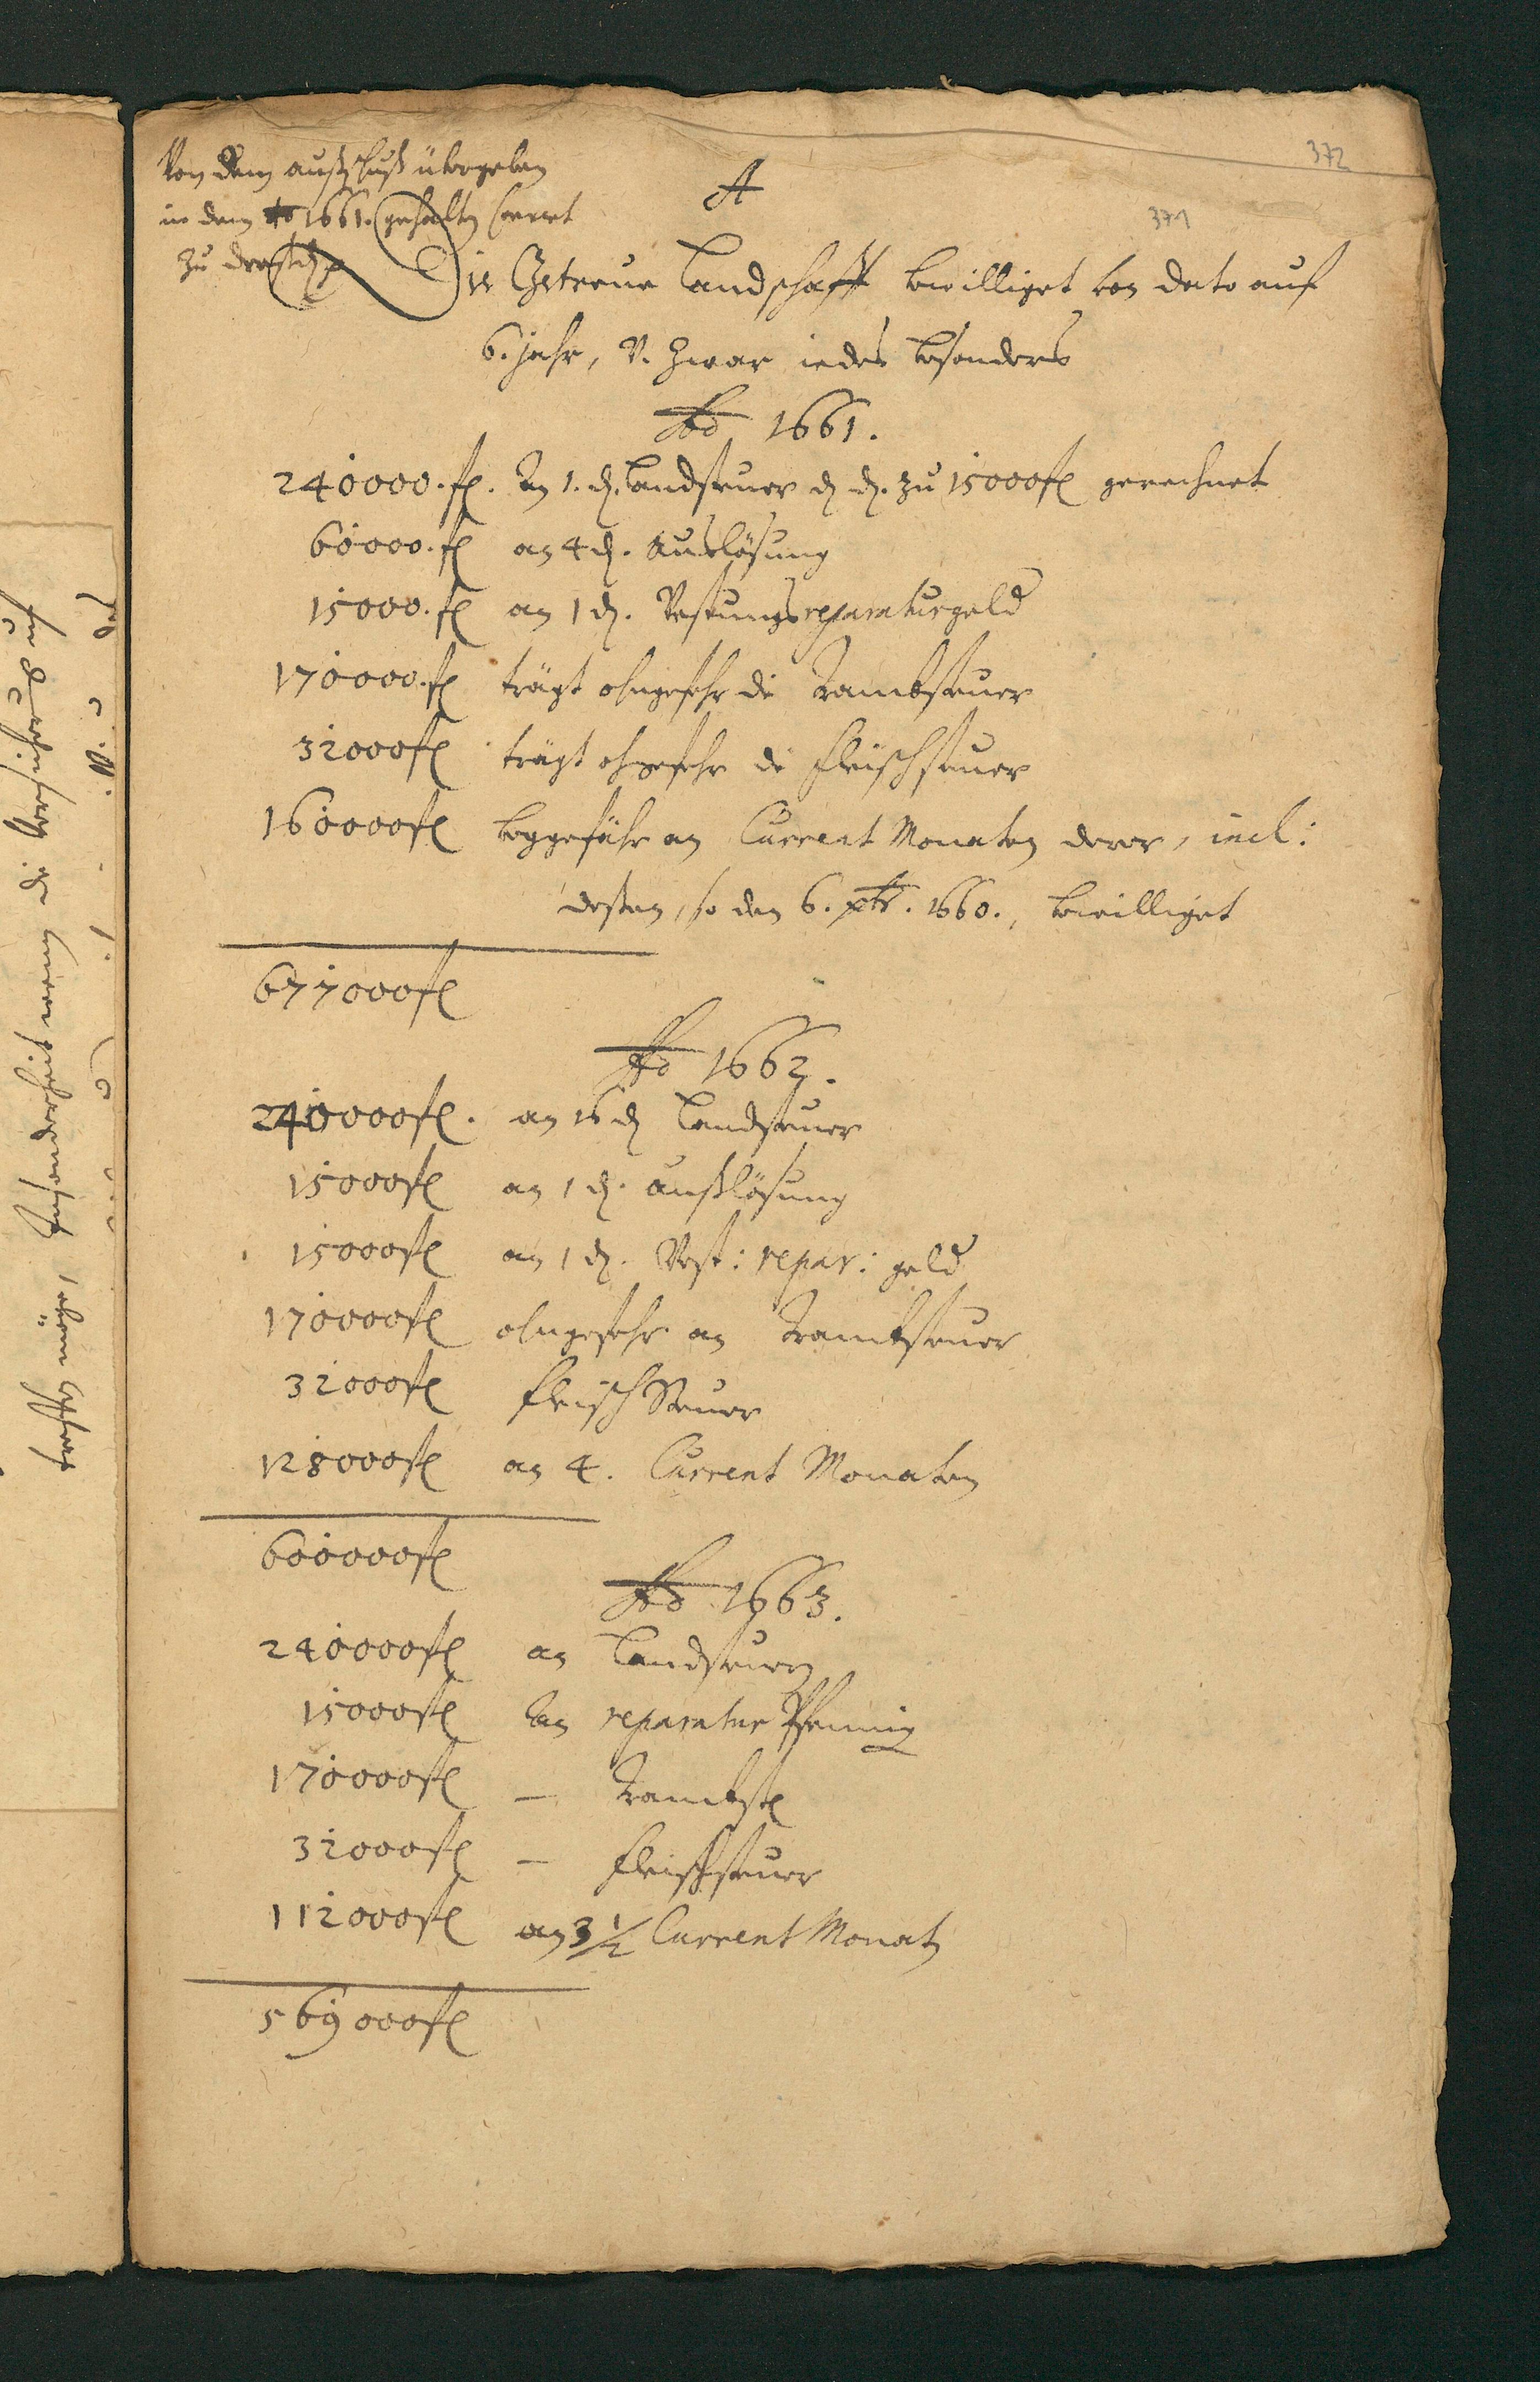 372
371
Von dem außschuß übergeben
in dem ao 1661. gehalten convent
zu dreßden
A
Die Getreue Landschafft bewilliget von dato auf
6. jahr, v. zwar iedes besonders
Ao 1661.
240000.fl. An 1. d. Landsteuer d d. zu 15000fl gerechnet
60000.fl an 4 d. Außlösung
15000.fl an 1 d. Vestungsreparaturgeld
170000.fl trägt ohngefehr die Trancksteuer
32000fl trägt ohngefehr die Fleischsteuer
160000fl ungefähr an Current Monaten derer, incl:
deßen, so den 6. 1660., bewilliget
677000fl
Ao 1662.
240000fl. an 16 d Landsteuer
15000fl an 1 d. Außlösung
15000fl an 1 d. Vest: repar: geld
170000fl ohngefehr an Trancksteuer
32000fl Fleisch Steuer
128000fl an 4. Current Monaten
600000fl
Ao 1663.
240000fl an Landsteuern
15000fl An reparatur Pfennig
170000fl – Tranckst
32000fl – Fleischsteuer
112000fl an 3 1/2 Current Monaten
569000fl